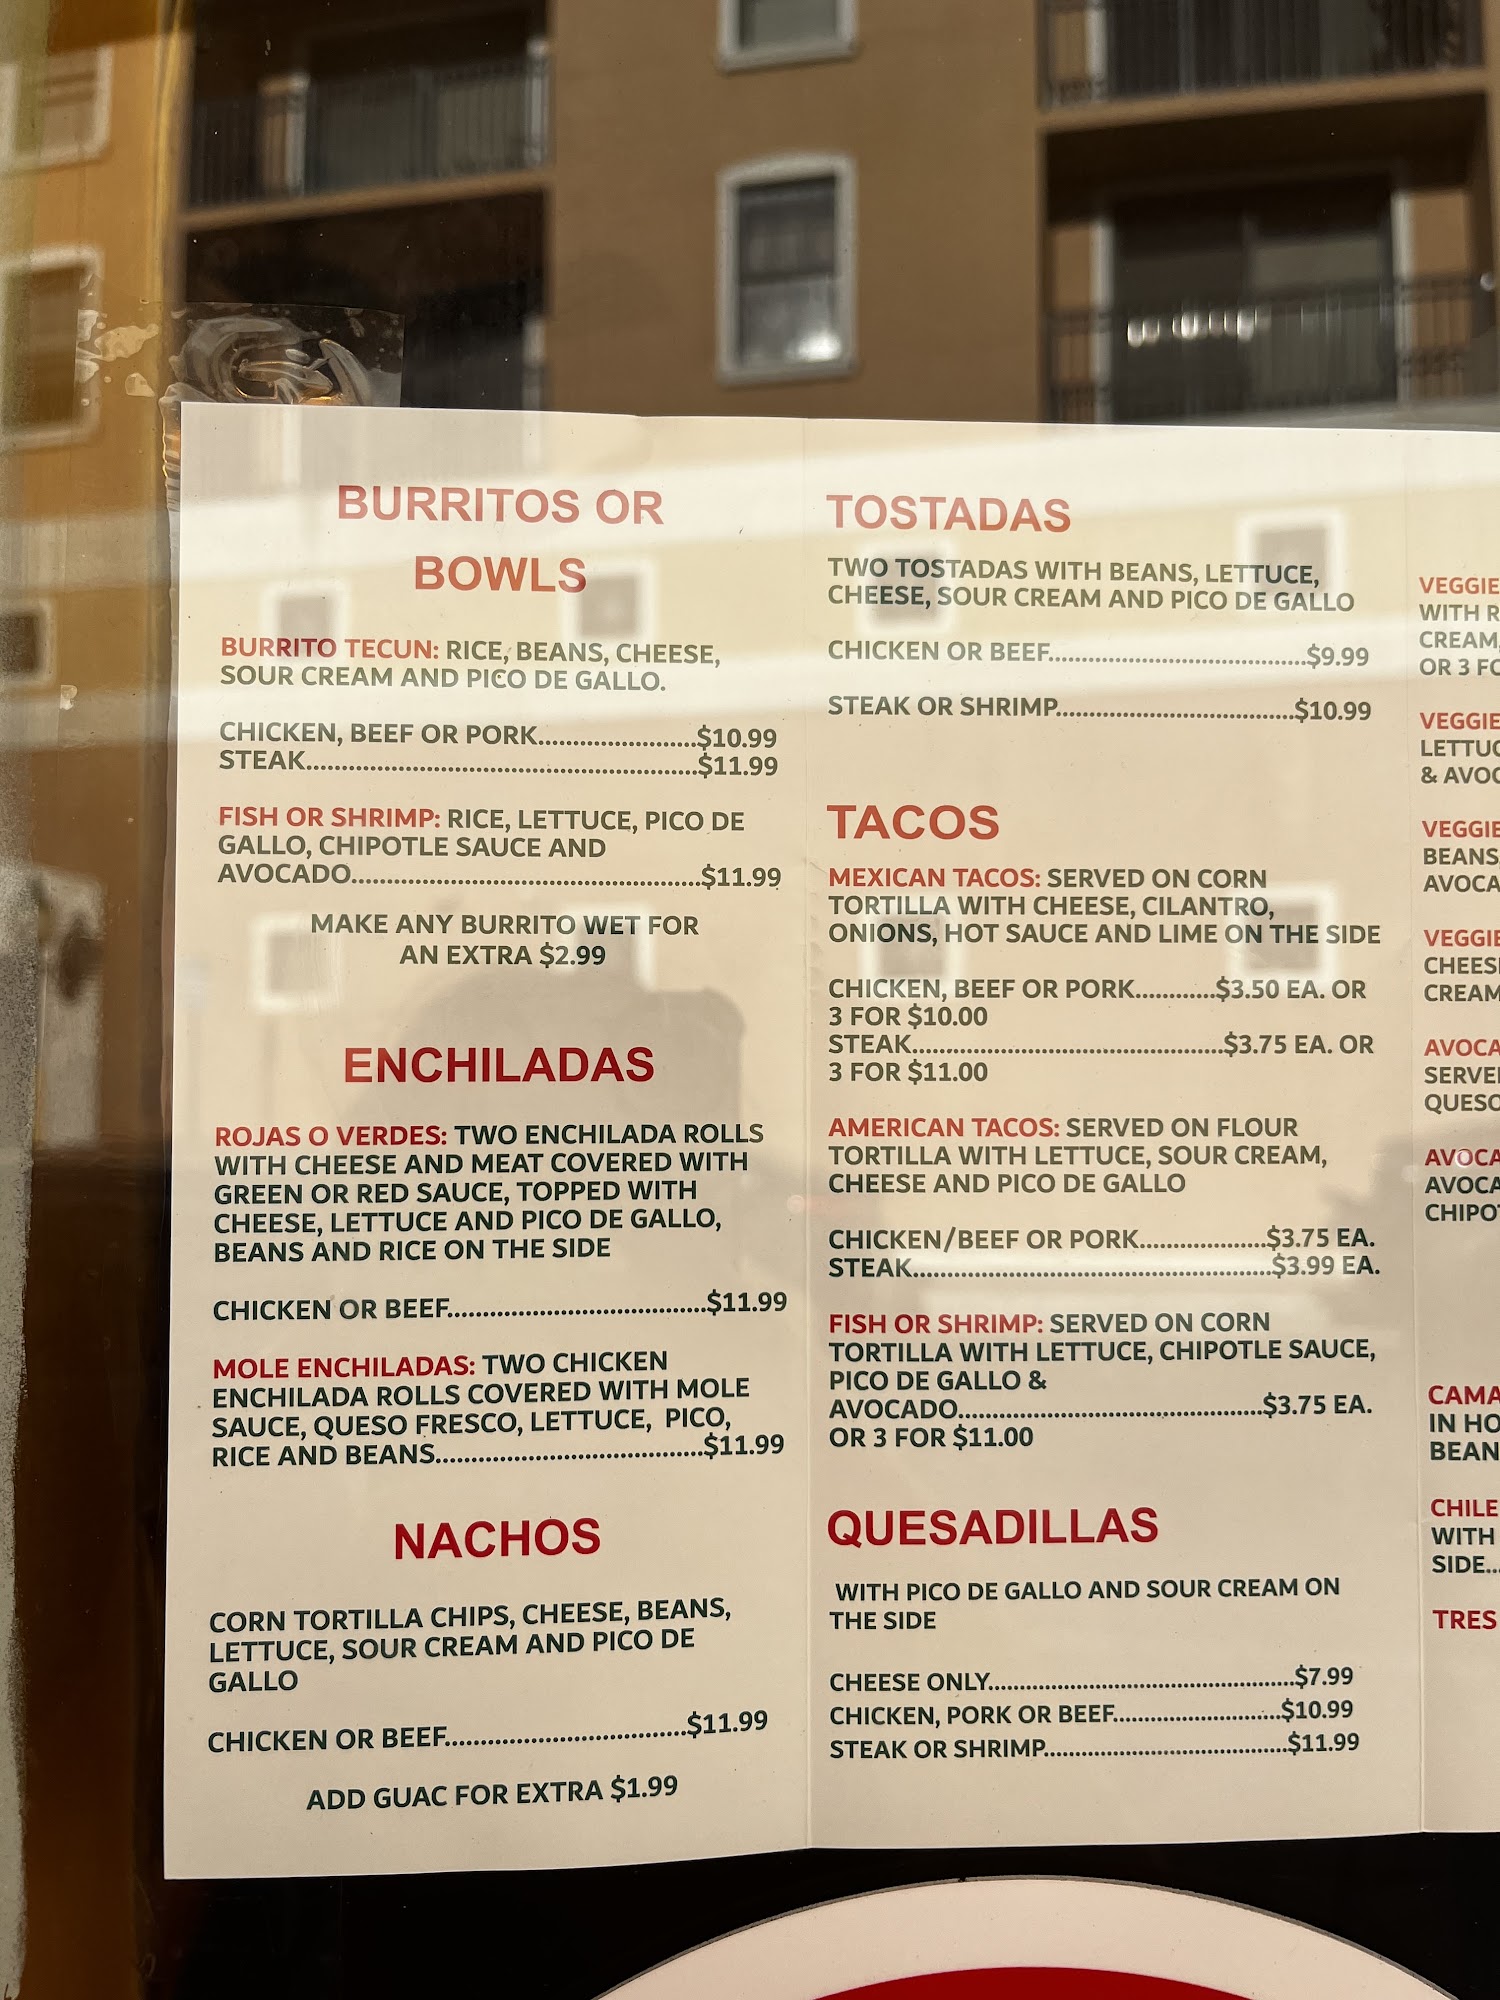 BURRITOS OR
BOWLS
BURRITO TECUN: RICE, BEANS, CHEESE,
SOUR CREAM AND PICO DE GALLO.
CHICKEN, BEEF OR PORK.......................$10.99
STEAK.........................................................$11.99
FISH OR SHRIMP: RICE, LETTUCE, PICO DE
GALLO, CHIPOTLE SAUCE AND
AVOCADO...................................................$11.99
MAKE ANY BURRITO WET FOR
AN EXTRA $2.99
ENCHILADAS
ROJAS O VERDES: TWO ENCHILADA ROLLS
WITH CHEESE AND MEAT COVERED WITH
GREEN OR RED SAUCE, TOPPED WITH
CHEESE, LETTUCE AND PICO DE GALLO,
BEANS AND RICE ON THE SIDE
CHICKEN OR BEEF.....................................$11.99
MOLE ENCHILADAS: TWO CHICKEN
ENCHILADA ROLLS COVERED WITH MOLE
SAUCE, QUESO FRESCO, LETTUCE, PICO,
RICE AND BEANS.......................................$11.99
NACHOS
CORN TORTILLA CHIPS, CHEESE, BEANS,
LETTUCE, SOUR CREAM AND PICO DE
GALLO
CHICKEN OR BEEF...................................$11.99
ADD GUAC FOR EXTRA $1.99
TOSTADAS
TWO TOSTADAS WITH BEANS, LETTUCE,
CHEESE, SOUR CREAM AND PICO DE GALLO
CHICKEN OR BEEF.....................................$9.99
STEAK OR SHRIMP..................................$10.99
TACOS
MEXICAN TACOS: SERVED ON CORN
TORTILLA WITH CHEESE, CILANTRO,
ONIONS, HOT SAUCE AND LIME ON THE SIDE
CHICKEN, BEEF OR PORK............$3.50 EA. OR
3 FOR $10.00
STEAK.............................................$3.75 EA. OR
3 FOR $11.00
AMERICAN TACOS: SERVED ON FLOUR
TORTILLA WITH LETTUCE, SOUR CREAM,
CHEESE AND PICO DE GALLO
CHICKEN/BEEF OR PORK..................$3.75 EA.
STEAK....................................................$3.99 EA.
FISH OR SHRIMP: SERVED ON CORN
TORTILLA WITH LETTUCE, CHIPOTLE SAUCE,
PICO DE GALLO &
AVOCADO............................................$3.75 EA.
OR 3 FOR $11.00
QUESADILLAS
WITH PICO DE GALLO AND SOUR CREAM ON
THE SIDE
CHEESE ONLY.............................................$7.99
CHICKEN, PORK OR BEEF........................$10.99
STEAK OR SHRIMP...................................$11.99
VEGGIE
WITH R
CREAM,
OR 3 FO
VEGGIE
LETTUC
& AVOC
VEGGIE
BEANS
AVOCA
VEGGIE
CHEES
CREAM
AVOCA
SERVE
QUESO
AVOCA
AVOCA
CHIPOT
CAMA
IN HO
BEAN
CHILE
WITH
SIDE..
TRES